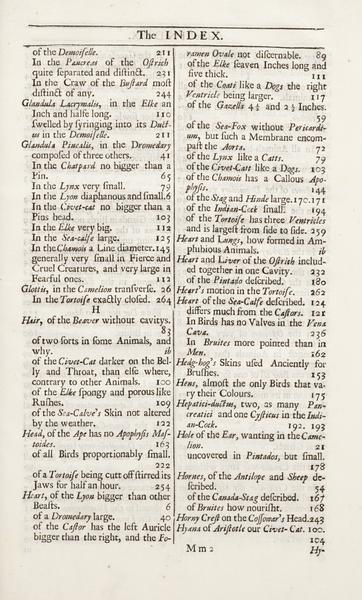 The INDEX.
of the Demoiselle. 211
In the Pancreas of the Ostrich
quite separated and distinct. 231
In the Craw of the Bustard most
distinct of any. 244
Glandula Lacrymalis, in the Elke an
Inch and halfe long. 110
swelled by syringing into its Duct-
us in the Demoiselle. 211
Glandula Pinealis, in the Dromedary
composed of three others. 41
In the Chatpard no bigger than a
Pin. 65
In the Lynx very small. 79
In the Lyon diaphanous and small. 6
In the Civet-cat no bigger than a
Pins head. 103
In the Elke very big. 112
In the Sea-calfe large. 125
In the Chamois a Line diameter. 145
generally very small in Fierce and
Cruel Creatures, and very large in
Fearful ones. 112
Glottis, in the Camelion transverse. 26
In the Tortoise exactly closed. 264
H
Hair, of the Beaver without cavitys.
83
of two sorts in some Animals, and
why. ib
of the Civet-Cat darker on the Bel-
ly and Throat, than else where,
contrary to other Animals. 100
of the Elke spongy and porous like
Rushes. 109
of the Sea-Calve's Skin not altered
by the weather. 122
Head, of the Ape has no Apophysis Mas-
toides. 163
of all Birds proportionably small.
222
of a Tortoise being cutt off stirred its
Jaws for half an hour. 254
Heart, of the Lyon bigger than other
Beasts. 6
of a Dromedary large. 40
of the Castor has the left Auricle
bigger than the right, and the Fo-
ramen Ovale not discernable. 89
of the Elke seaven Inches long and
five thick. 111
of the Coati like a Dogs the right
Ventricle being larger. 117
of the Gazella 4½ and 2½ Inches.
59
of the Sea-Fox without Pericardi-
um, but such a Membrane encom-
past the Aorta. 72
of the Lynx like a Catts. 79
of the Civet-Catt like a Dogs. 103
of the Chamois has a Callous Apo-
physis. 144
of the Stag and Hinde large. 170. 171
of the Indian-Cock small. 194
of the Tortoise has three Ventricles
and is largest from side to side. 259
Heart and Lungs, how formed in Am-
phibious Animals. ib
Heart and Liver of the Ostrich includ-
ed together in one Cavity. 232
of the Pintado described. 180
Heart's motion in the Tortoise. 262
Heart of the Sea-Calfe described. 124
differs much from the Castors. 121
In Birds has no Valves in the Vena
Cava. 236
In Bruites more pointed than in
Men. 162
Hedg-hog's Skins used Anciently for
Brushes. 153
Hens, almost the only Birds that va-
ry their Colours. 175
Hepatici-ductus, two, as many Pan-
creatici and one Cysticus in the Indi-
an-Cock. 192. 193
Hole of the Ear, wanting in the Came-
lion. 21
uncovered in Pintados, but small.
178
Hornes, of the Antilope and Sheep de-
scribed. 54
of the Canada-Stag described. 167
of Bruites how nourisht. 168
Horny Crest on the Cossowar's Head. 243
Hyana of Aristotle our Civet-Cat. 100.
104
M m 2
Hy-